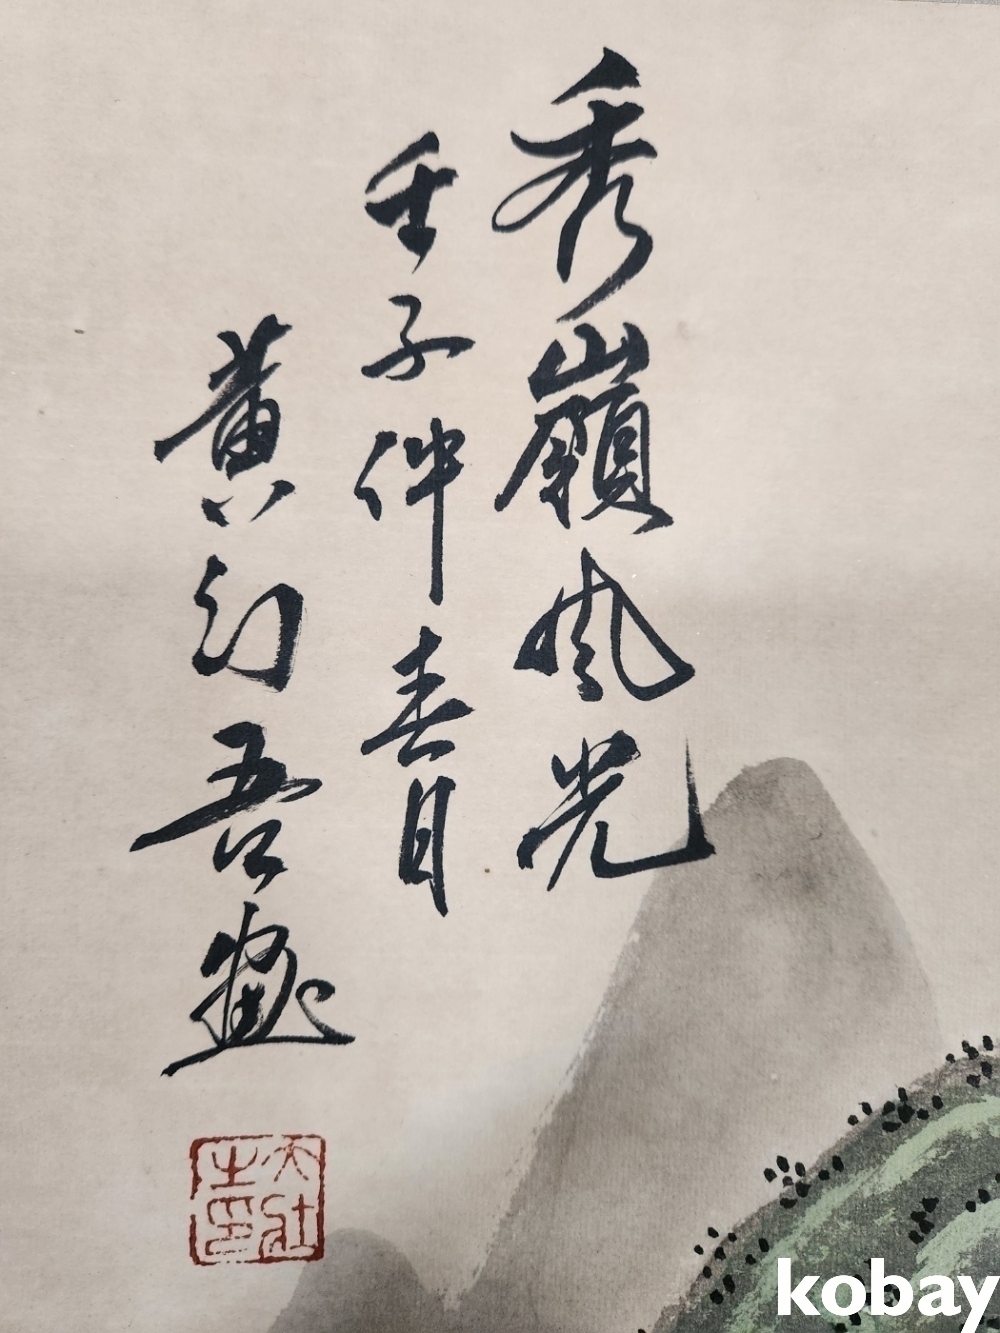 秀嶺風光
壬子仲春月
黃幻吾畫
kobay